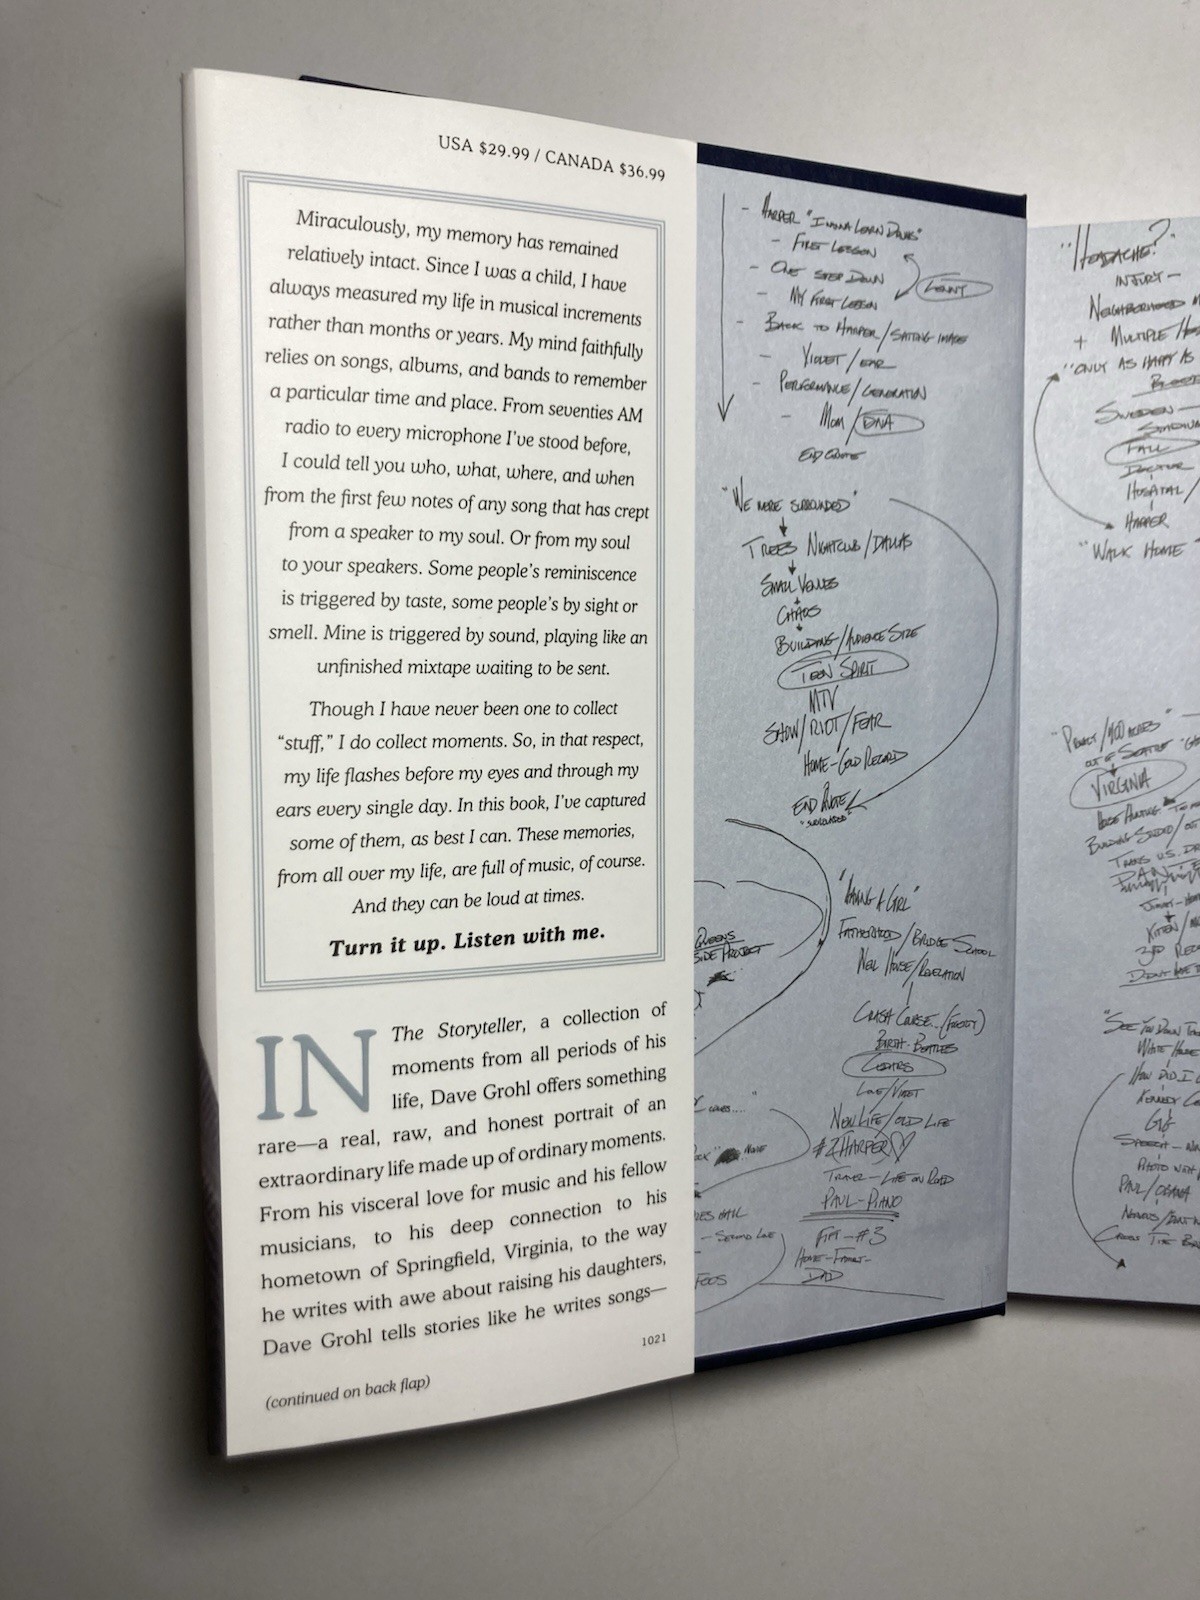 USA $29.99 / CANADA $36.99
Miraculously, my memory has remained
relatively intact. Since I was a child, I have
always measured my life in musical increments
rather than months or years. My mind faithfully
relies on songs, albums, and bands to remember
a particular time and place. From seventies AM
radio to every microphone I've stood before,
I could tell you who, what, where, and when
from the first few notes of any song that has crept
from a speaker to my soul. Or from my soul
to your speakers. Some people's reminiscence
is triggered by taste, some people's by sight or
smell. Mine is triggered by sound, playing like an
unfinished mixtape waiting to be sent.
Though I have never been one to collect
“stuff,” I do collect moments. So, in that respect,
my life flashes before my eyes and through my
ears every single day. In this book, I've captured
some of them, as best I can. These memories,
from all over my life, are full of music, of course.
And they can be loud at times.
Turn it up. Listen with me.
IN The Storyteller, a collection of
moments from all periods of his
life, Dave Grohl offers something
rare—a real, raw, and honest portrait of an
extraordinary life made up of ordinary moments.
From his visceral love for music and his fellow
musicians, to his deep connection to his
hometown of Springfield, Virginia, to the way
he writes with awe about raising his daughters,
Dave Grohl tells stories like he writes songs—
1021
(continued on back flap)
- HARPER "I WANNA LEARN DRUMS"
- FIRST LESSON
- ONE STEP DOWN
LENNY
- MY FIRST LESSON
- BACK TO HARPER/SITTING IMAGE
- VIOLET/EAR
- PERFORMANCE/GENERATION
- MOM/DNA
END QUOTE
"WE WERE SURROUNDED"
TREES NIGHTCLUB/DALLAS
SMALL VENUES
CHAOS
BUILDING/AUDIENCE SIZE
TEEN SPIRIT
MTV
SHOW/RIOT/FEAR
HOME-GOLD RECORD
END QUOTE
"SURROUNDED"
QUEENS
SIDE PROJECT
- SECOND LOVE
FOOS
"HAVING A GIRL"
FATHERHOOD/BRIDGE SCHOOL
NEIL HOUSE/REVELATION
CRASH COURSE
BIRTH-BEATLES
LOVE/VIOLET
NEW LIFE/OLD LIFE
#2 HARPER♡
TRAVEL-LIFE ON ROAD
PAUL-PIANO
#3
HOME-FAMILY-
DAD
"HEADACHE?"
INJURY-
NEIGHBORHOOD
+ MULTIPLE
"ONLY AS HAPPY AS
SWEDEN-
FALL
DOCTOR
HOSPITAL/
HARPER
"WALK HOME"
OUT OF SEATTLE
VIRGINIA
HOUSE HUNTING
3RD
"SEE YOU DOWN
WHITE HOUSE
HOW DID I
KENNEDY
SPEECH-
PHOTO WITH
PAUL/OBAMA